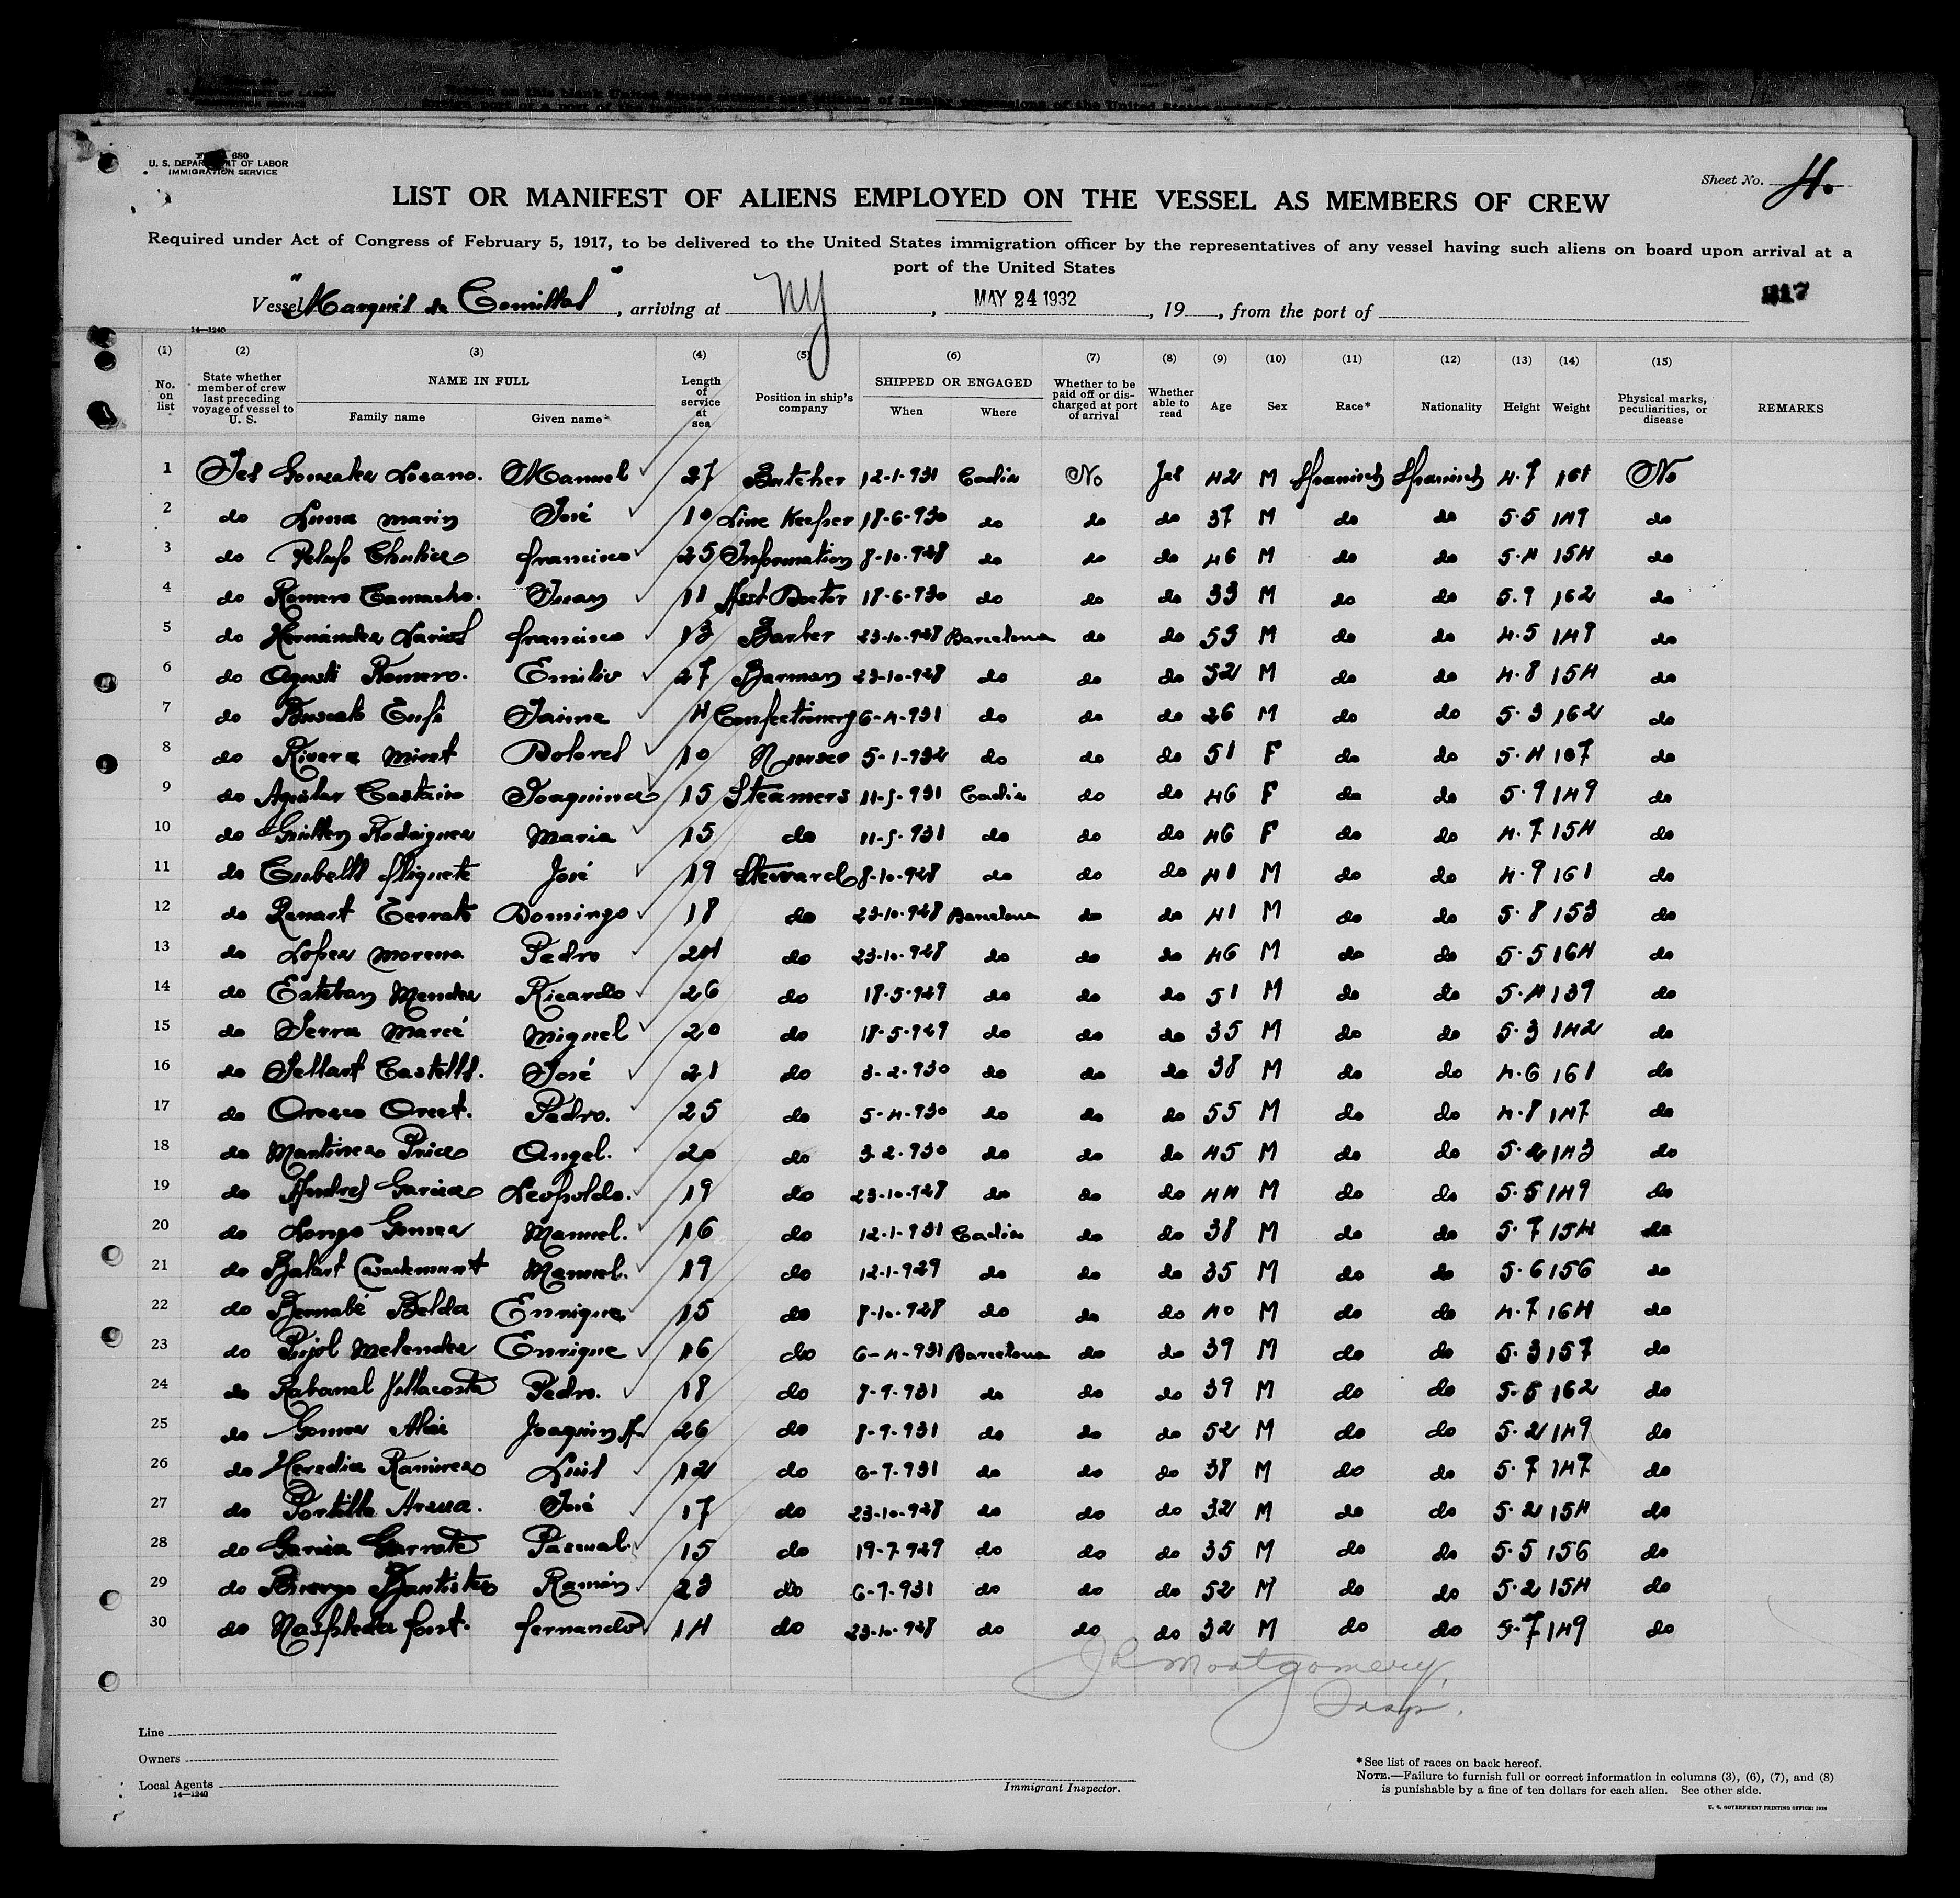 FORM 680
U. S. DEPARTMENT OF LABOR
IMMIGRATION SERVICE
Sheet No. 4.
LIST OR MANIFEST OF ALIENS EMPLOYED ON THE VESSEL AS MEMBERS OF CREW
Required under Act of Congress of February 5, 1917, to be delivered to the United States immigration officer by the representatives of any vessel having such aliens on board upon arrival at a
port of the United States
Vessel "Marqués de Comillas", arriving at NY, MAY 24 1932, 19, from the port of
14—1240
(1) (2) (3) (4) (5) (6) (7) (8) (9) (10) (11) (12) (13) (14) (15)
No. on list State whether member of crew last preceding voyage of vessel to U. S. NAME IN FULL Family name Given name Length of service at sea Position in ship's company SHIPPED OR ENGAGED When Where Whether to be paid off or discharged at port of arrival Whether able to read Age Sex Race* Nationality Height Weight Physical marks, peculiarities, or disease REMARKS
1 Yes Gonzalez Lozano. Manuel 27 Butcher 12-1-931 Cadiz No Yes 42 M Spanish Spanish 4.7 161 No
2 do Luna Marin José 10 Line Keeper 18-6-930 do do do 37 M do do 5.5 149 do
3 do Pelufo Francisco 25 Information 8-10-928 do do do 46 M do do 5.4 154 do
4 do Romero Camacho. Juan 11 Asst Doctor 18-6-930 do do do 33 M do do 5.9 162 do
5 do Hernández Francisco 13 Barber 23-10-928 Barcelona do do 53 M do do 4.5 148 do
6 do Agusti Romero. Emilio 27 Barman 23-10-928 do do do 52 M do do 4.8 154 do
7 do Jaime 4 Confectionery 6-4-931 do do do 26 M do do 5.3 162 do
8 do Rivera Miret Dolores 10 Nurser 5-1-932 do do do 51 F do do 5.4 107 do
9 do Aguilar Castaño Joaquina 15 Steamers 11-5-931 Cadiz do do 46 F do do 5.9 149 do
10 do Guillen Rodriguez Maria 15 do 11-5-931 do do do 46 F do do 4.7 154 do
11 do Cubells José 19 Steward 8-10-928 do do do 41 M do do 4.9 161 do
12 do Renart Domingo 18 do 23-10-928 Barcelona do do 41 M do do 5.8 153 do
13 do Lopez Moreno Pedro 24 do 23-10-928 do do do 46 M do do 5.5 164 do
14 do Esteban Mendez Ricardo 26 do 18-5-929 do do do 51 M do do 5.4 139 do
15 do Serra Marcé Miguel 20 do 18-5-929 do do do 35 M do do 5.3 142 do
16 do Sellart Castells. José 21 do 3-2-930 do do do 38 M do do 4.6 161 do
17 do Orozco Pedro. 25 do 5-4-930 do do do 55 M do do 4.8 147 do
18 do Martinez Angel. 20 do 3-2-930 do do do 45 M do do 5.2 143 do
19 do Andres Garcia Leopoldo. 19 do 23-10-928 do do do 44 M do do 5.5 149 do
20 do Longo Gomez Manuel. 16 do 12-1-931 Cadiz do do 38 M do do 5.7 154 do
21 do Balart Casademunt Manuel. 19 do 12-1-929 do do do 35 M do do 5.6 156 do
22 do Bernabé Belda Enrique 15 do 8-10-928 do do do 40 M do do 4.7 164 do
23 do Pujol Melendez Enrique 16 do 6-4-931 Barcelona do do 39 M do do 5.3 157 do
24 do Rabanal Villacosta Pedro. 18 do 8-9-931 do do do 39 M do do 5.5 162 do
25 do Gomez Joaquin A. 26 do 8-9-931 do do do 52 M do do 5.2 149 do
26 do Heredia Ramirez Luis 12 do 6-7-931 do do do 38 M do do 5.7 147 do
27 do Portillo José 17 do 23-10-928 do do do 32 M do do 5.2 154 do
28 do Garcia Garrote Pascual. 15 do 19-7-929 do do do 35 M do do 5.5 156 do
29 do Bautista Ramón 23 do 6-7-931 do do do 52 M do do 5.2 154 do
30 do Font. Fernando 14 do 23-10-928 do do do 32 M do do 5.7 149 do
J R Montgomery
Insp.
Line
Owners
Local Agents
14—1240
Immigrant Inspector.
*See list of races on back hereof.
NOTE.—Failure to furnish full or correct information in columns (3), (6), (7), and (8)
is punishable by a fine of ten dollars for each alien. See other side.
U. S. GOVERNMENT PRINTING OFFICE: 1929